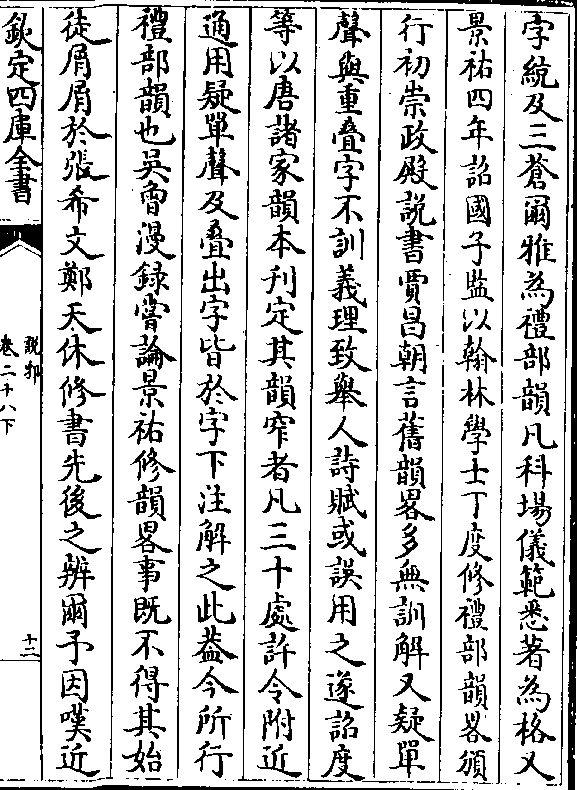 字統及三蒼爾雅為禮部韻凡科場儀範悉著為格又
景祐四年詔國子監以翰林學士丁度修禮部韻畧頒
行初崇政殿說書賈昌朝言舊韻畧多無訓解又疑單
聲與重疊字不訓義理致舉人詩賦或誤用之遂詔度
等以唐諸家韻本刋定其韻窄者凡三十處許令附近
通用疑單聲及疊出字皆於字下注解之此葢今所行
禮部韻也吳曾漫録嘗論景祐修韻畧事既不得其始
徒屑屑於張希文鄭天休修書先後之辨爾予因嘆近
欽定四庫全書
說郛
卷二十八下
十二